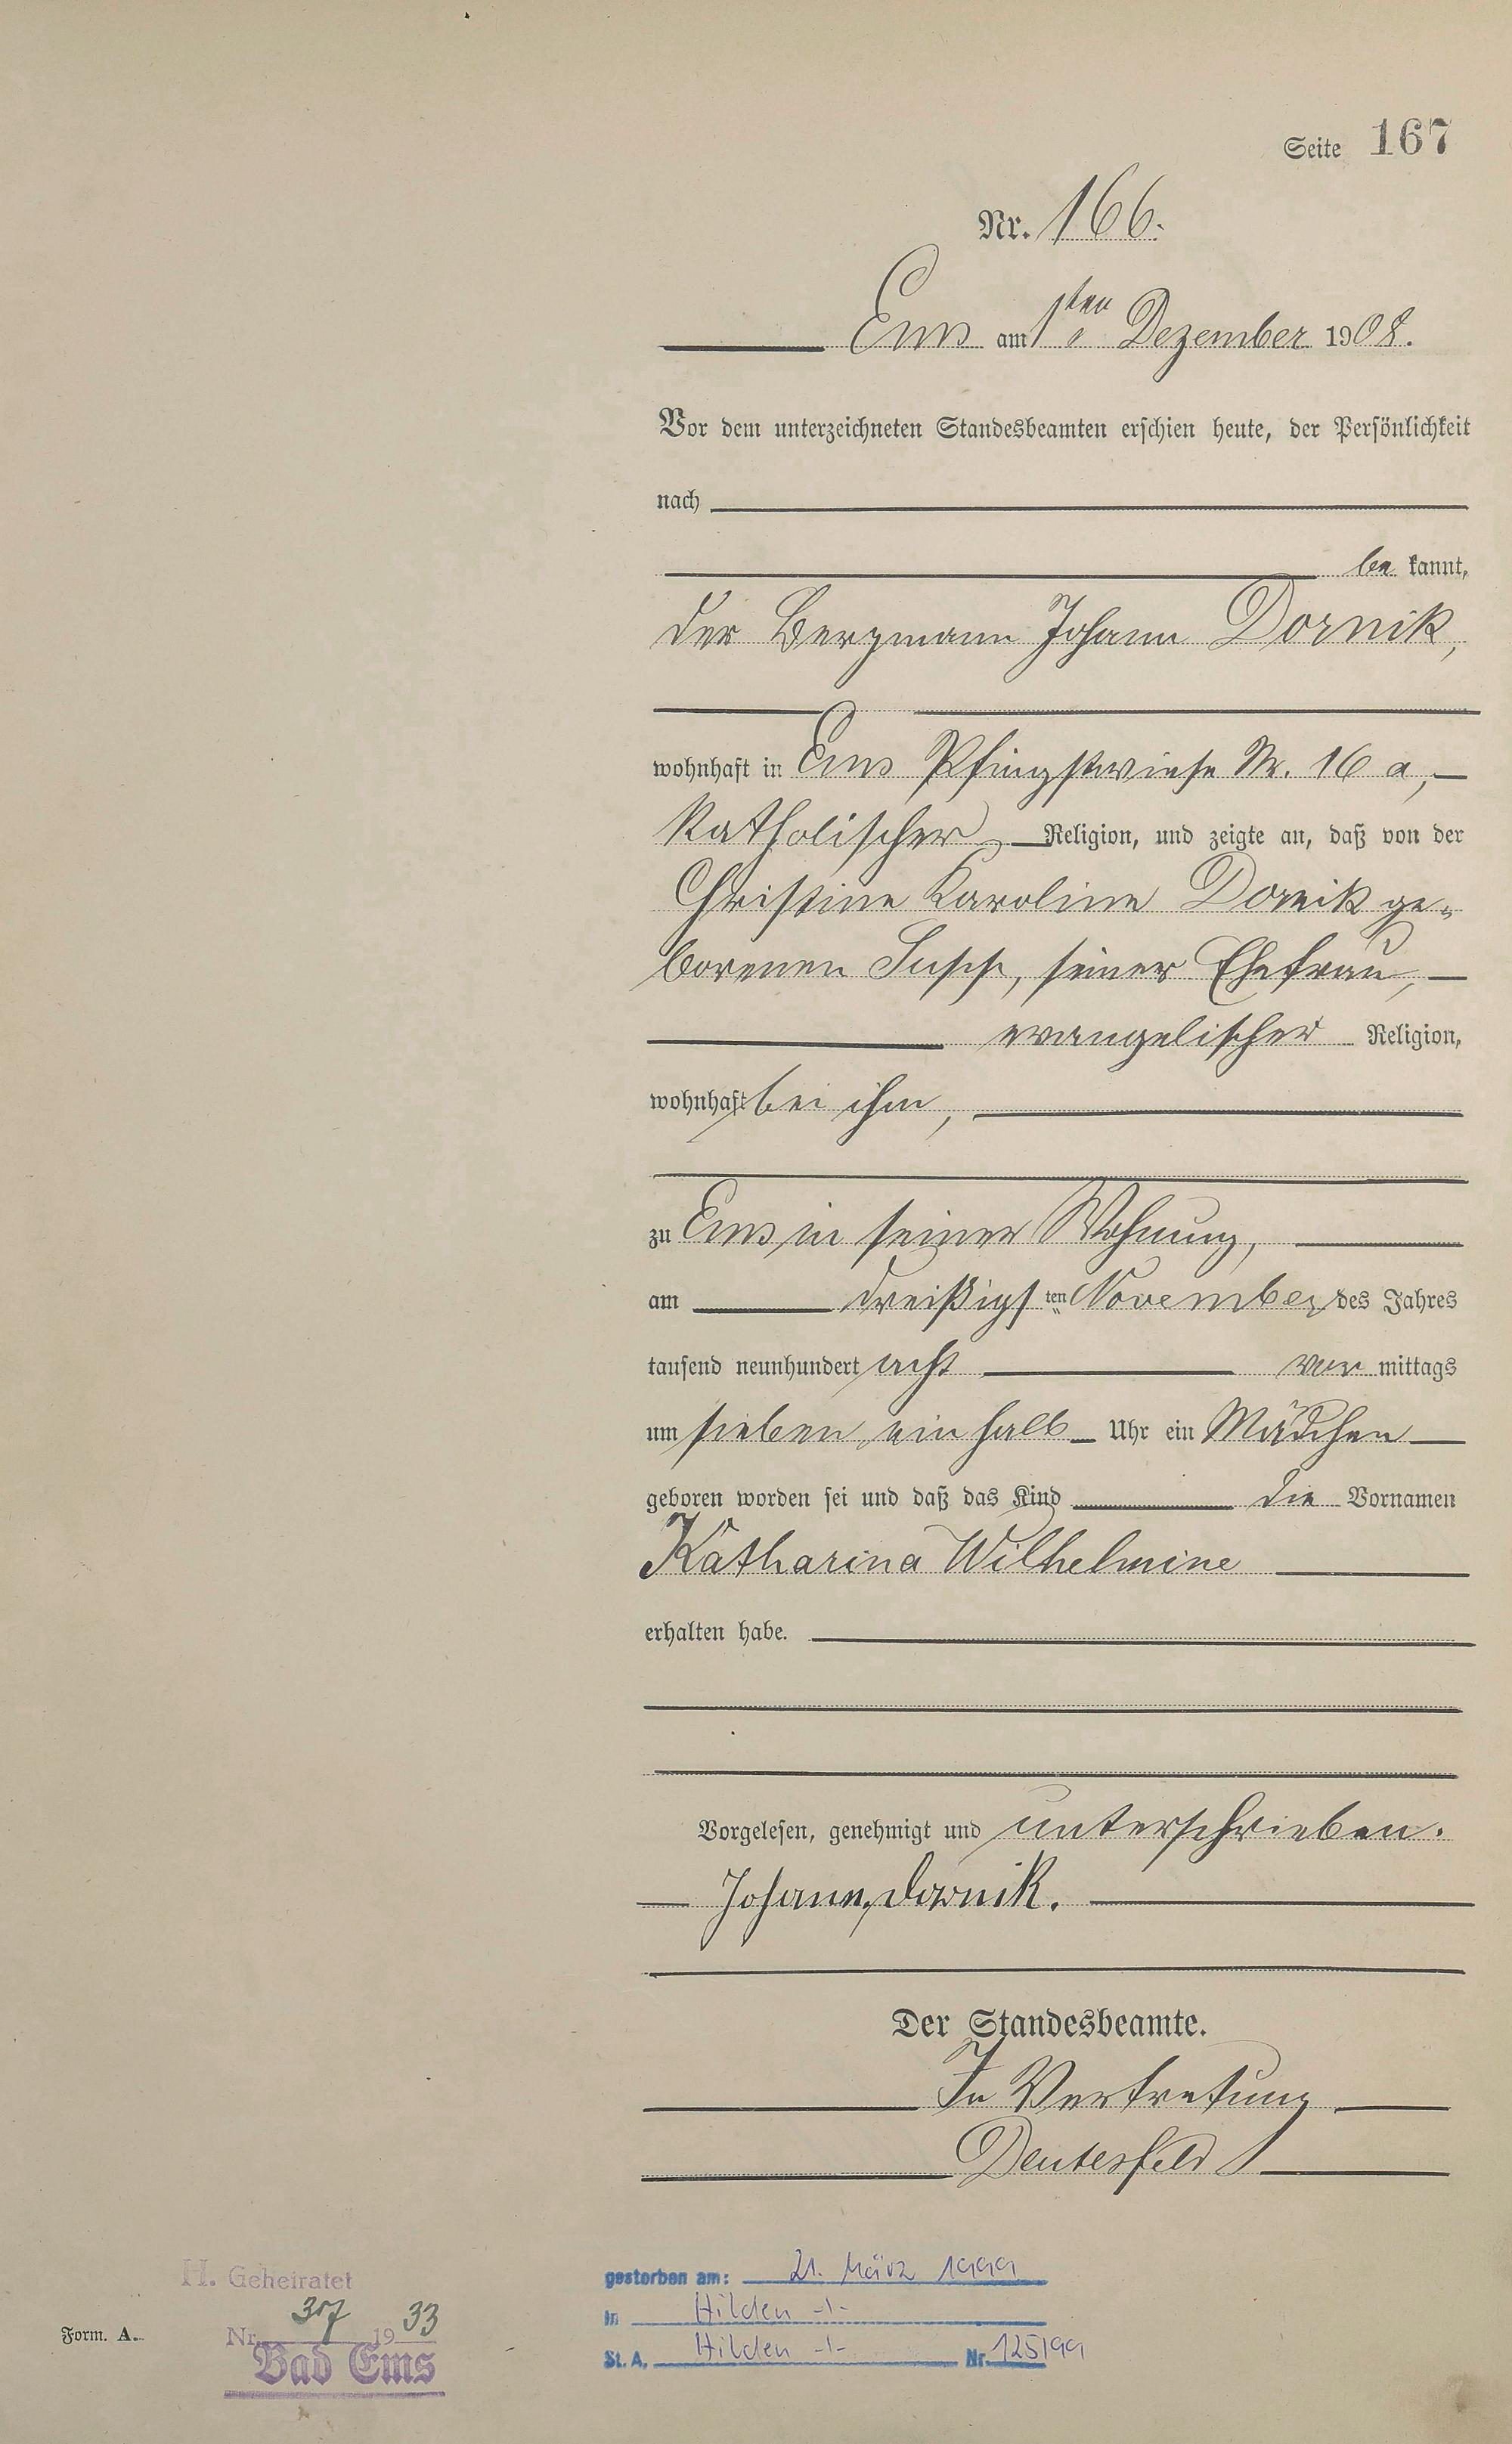 Seite 167
Nr. 166.
Ems am 1ten Dezember 1908.
Vor dem unterzeichneten Standesbeamten erschien heute, der Persönlichkeit
nach
be kannt,
der Bergmann Johann Dornik,
wohnhaft in Ems Pfingstwiese Nr. 16 a,
katholischer Religion, und zeigte an, daß von der
Christine Karoline Dornik ge-
borenen Supp, seiner Ehefrau,
evangelischer Religion,
wohnhaft bei ihm,
zu Ems in seiner Wohnung,
am dreißigsten November des Jahres
tausend neunhundert acht vor mittags
um sieben ein halb Uhr ein Mädchen
geboren worden sei und daß das Kind die Vornamen
Katharina Wilhelmine
erhalten habe.
Vorgelesen, genehmigt und unterschrieben.
Johann Dornik.
Der Standesbeamte.
In Vertretung
Deutesfeld
H. Geheiratet
Nr. 37 1933
Bad Ems
Form. A.
gestorben am: 21. März 1999
in Hilden -1-
St. A. Hilden -1- Nr. 125/99